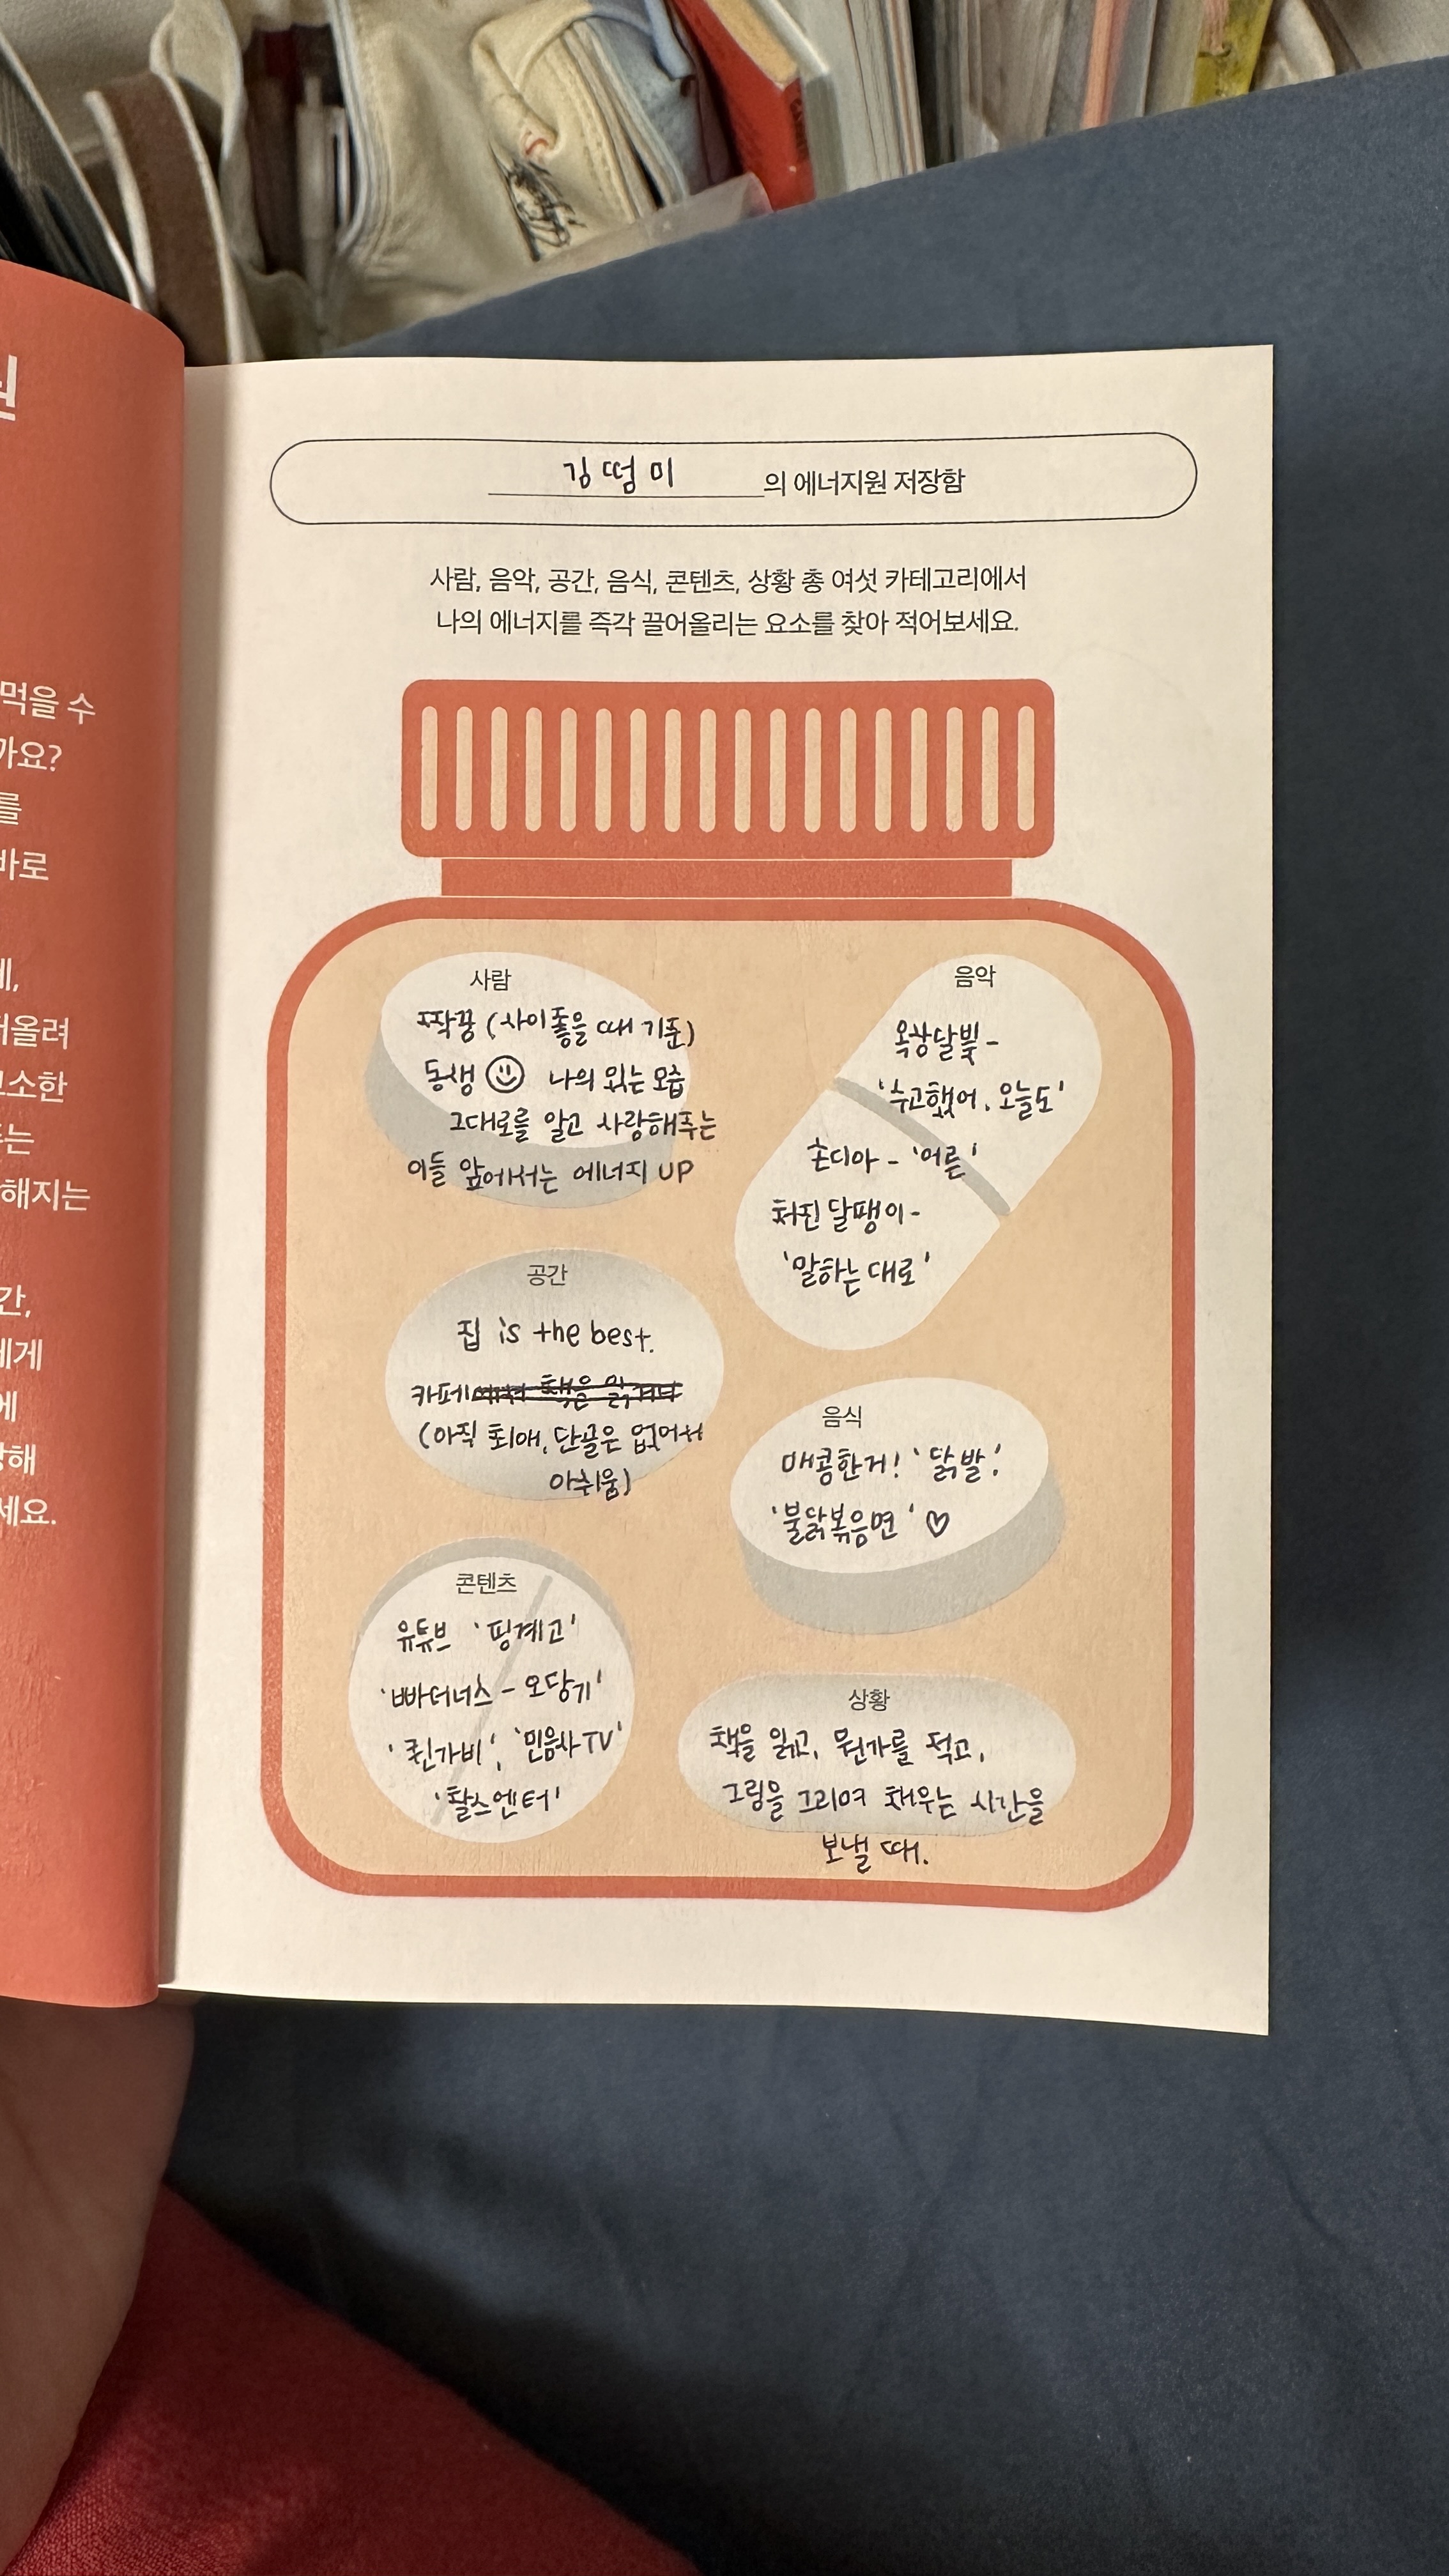 원
먹을 수
까요?
를
바로
데,
거올려
소소한
주는
해지는
간,
에게
에
당해
세요.
김떰미의 에너지원 저장함
사람, 음악, 공간, 음식, 콘텐츠, 상황 총 여섯 카테고리에서
나의 에너지를 즉각 끌어올리는 요소를 찾아 적어보세요.
사람
짝꿍 (사이좋을 때 기준)
동생 나의 있는 모습
그대로를 알고 사랑해주는
이들 앞에서는 에너지 UP
음악
옥상달빛 -
'수고했어, 오늘도'
손디아 - '어른'
처진 달팽이 -
'말하는 대로'
공간
집 is the best.
카페에서 책을 읽거나
(아직 최애, 단골은 없어서
아쉬움)
음식
매콤한거! '닭발'
'불닭볶음면' ♡
콘텐츠
유튜브 '핑계고'
'빠더너스 - 오당기'
'퀸가비', '민음사TV'
'찰스엔터'
상황
책을 읽고, 뭔가를 적고,
그림을 그리며 채우는 시간을
보낼 때.